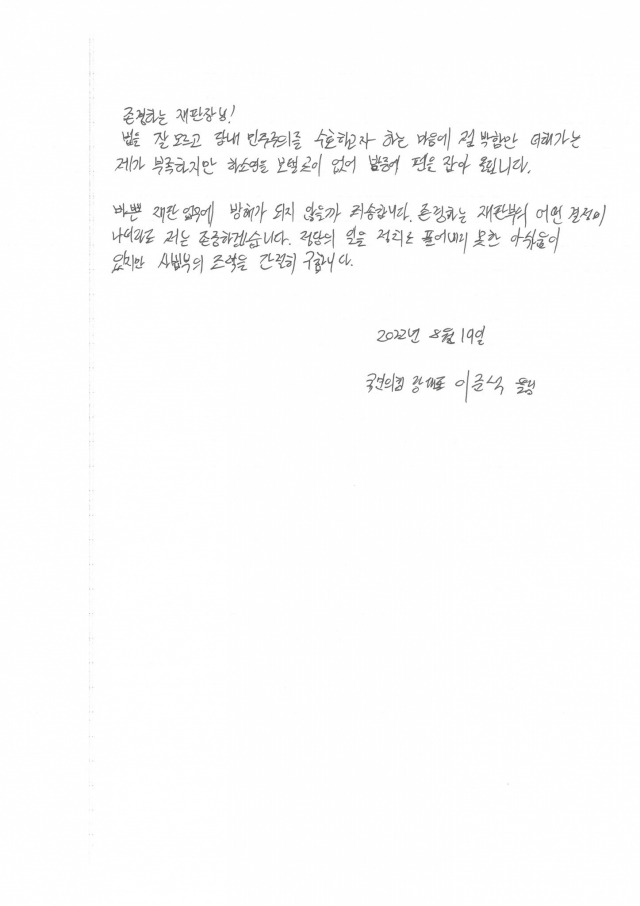 존경하는 재판장님!
법을 잘 모르고 당내 민주주의를 수호하고자 하는 마음에 절박함만 더해가는
제가 부족하지만 하소연을 보낼 곳이 없어 밤중에 펜을 잡아 올립니다.
바쁜 재판 업무에 방해가 되지 않을까 죄송합니다. 존경하는 재판부의 어떤 결정이
나더라도 저는 존중하겠습니다. 정당의 일을 정치로 풀어내지 못한 아쉬움이
있지만 사법부의 조력을 간절히 구합니다.
2022년 8월 19일
국민의힘 당대표 이준석 올림